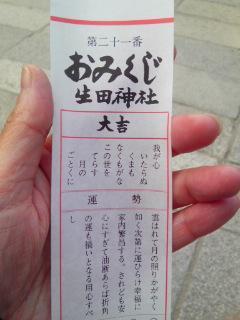 第二十一番
おみくじ
生田神社
大吉
我が心
いたらぬ
くまも
なくもがな
この世を
てらす
月の
ごとくに
運勢
雲はれて月の照りかがやく
如く次第に運ひらけ幸福に
家内繁昌する。されども安
心にすぎて油断あらば折角
の運も損いとなる用心すべ
し